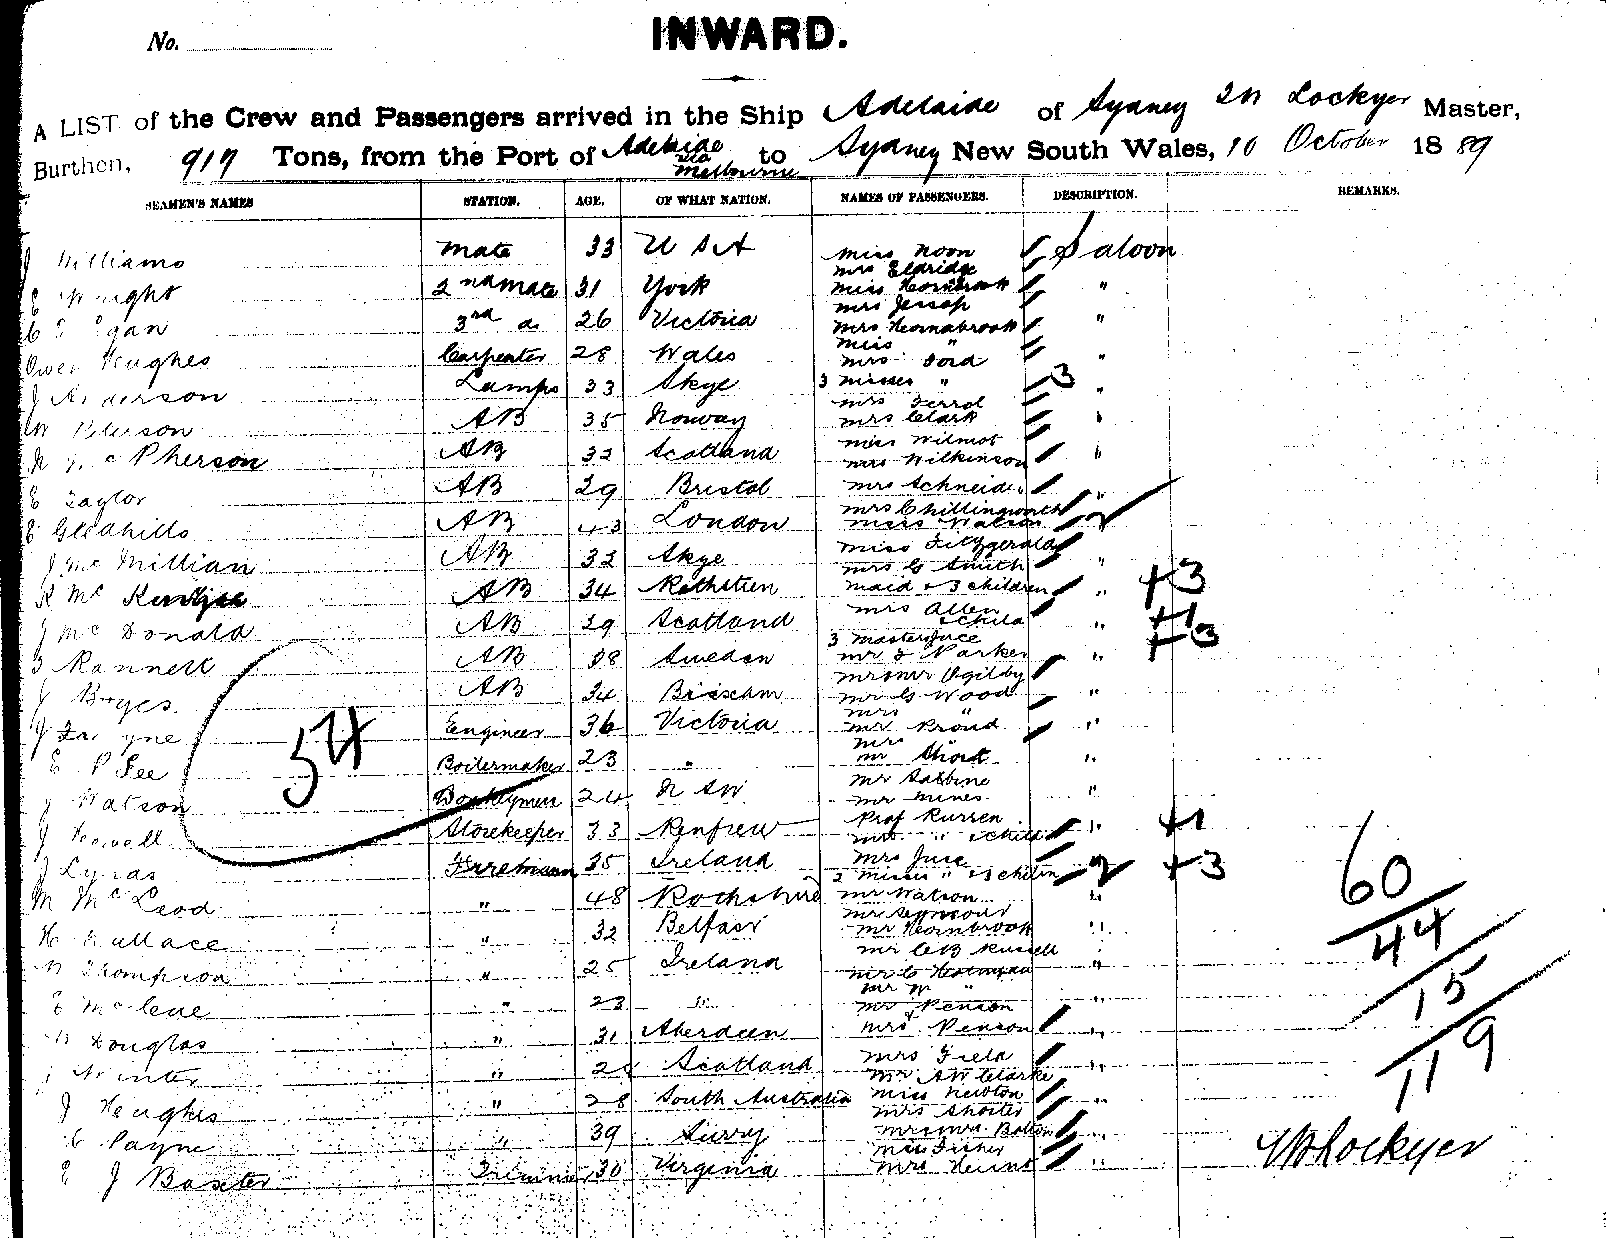 INWARD.
No.
A LIST of the Crew and Passengers arrived in the Ship Adelaide of Sydney Lockyer Master,
Burthen, 917 Tons, from the Port of Adelaide via Melbourne to Sydney New South Wales, 10 October 1889
SEAMEN'S NAMES STATION. AGE. OF WHAT NATION. NAMES OF PASSENGERS. DESCRIPTION. REMARKS.
J Williams Mate 33 U S A Miss Noon Saloon
Mrs Eldridge
Wright 2nd Mate 31 York Miss Hornabrook "
Mrs Jessop
3rd do 26 Victoria Mrs Hornabrook "
Miss "
Owen Hughes Carpenter 28 Wales Mrs Ford "
J Anderson Lamps 33 Skye 3 Misses " 3 "
Mrs Ferrol
AB 35 Norway Mrs Clark "
Miss Wilmot
McPherson AB 32 Scotland Mrs Wilkinson "
E Taylor AB 29 Bristol Mrs Schneider "
Mrs Chillingworth
E Gledhills AB 43 London Miss Watson 2
Miss Fitzgerald
J McMillian AB 32 Skye Mrs G Smith "
K Mc AB 34 Maid & 3 children " +3
Mrs Allen
J McDonald AB 29 Scotland & child " +1
3 Masters Juce +3
AB 38 Sweden Mr J Parker "
Mr & Mr Ogilby
J AB 34 Mr G Wood "
Mrs "
J Engineer 36 Victoria Mr Proud "
Mrs "
54
E P See Boilermaker 23 " Mr Short "
Mr Sabine
J Watson Donkeyman 24 N S W Mr Mines "
Prof
J Howell Storekeeper 33 Renfrew Mrs " & child " +1
J Lynas Fireman 35 Ireland Mrs Juce
2 Misses " & 3 children 2 +3
M McLeod " 48 Mr Watson "
Mr Seymour
H Wallace " 32 Belfast Mr Hornabrook "
Mr C B Russell
Thompson " 25 Ireland Mr C "
Mr W "
McCue " 23 " Mr Penson "
Douglas " 31 Aberdeen Mrs Penson "
Winter " Scotland Mrs Field "
Mr A W Clarke
J Hughes " 28 South Australia Miss Newton "
Mrs Shorter
C Payne " 39 Surry Mr & Mrs Bolton "
Miss Fisher
E J Baxter Trimmer 30 Virginia Mrs "
60
44
15
119
Lockyer